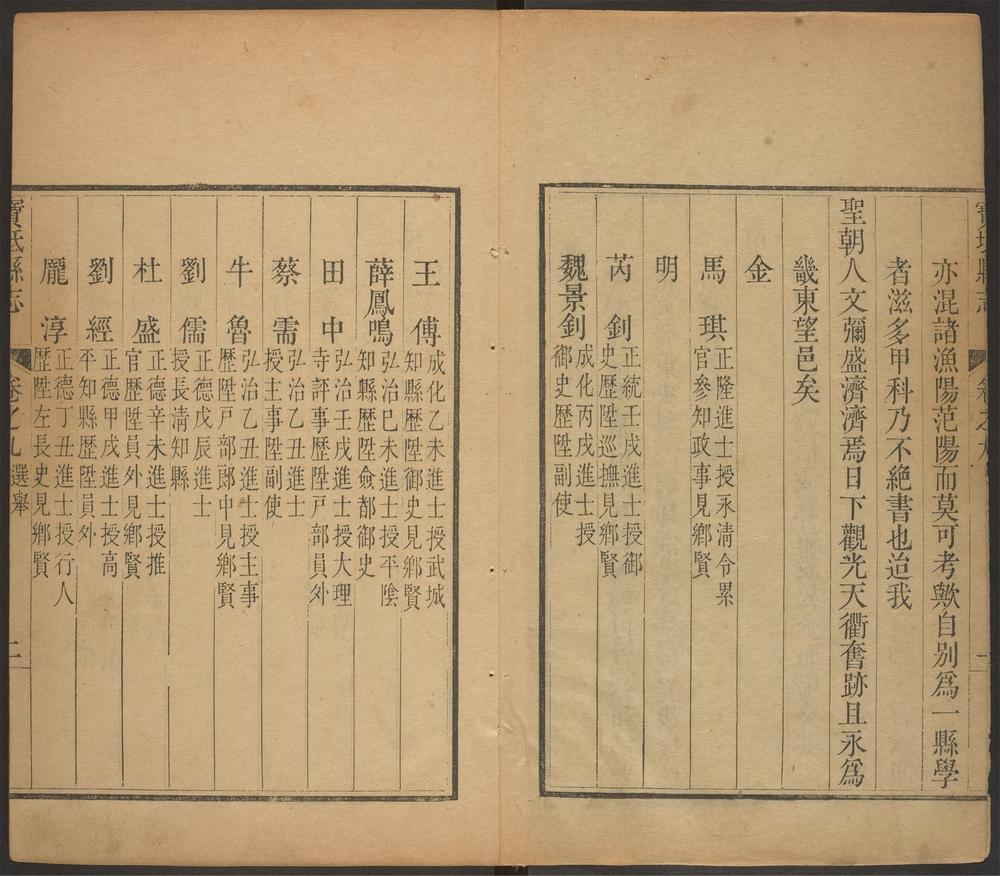 寶坻縣志
卷之九
一
亦混諸漁陽范陽而莫可考歟自别爲一縣學
者滋多甲科乃不絶書也迨我
聖朝人文彌盛濟濟焉日下觀光天衢奮跡且永爲
畿東望邑矣
金
馬琪正隆進士授永清令累
官參知政事見鄉賢
明
芮釗正統壬戌進士授御
史歷陞巡撫見鄉賢
魏景釗成化丙戌進士授
御史歷陞副使
王傅成化乙未進士授武城
知縣歷陞御史見鄉賢
薛鳳鳴弘治己未進士授平陰
知縣歷陞僉都御史
田中弘治壬戌進士授大理
寺評事歷陞戸部員外
蔡需弘治乙丑進士
授主事陞副使
牛魯弘治乙丑進士授主事
歷陞戸部郎中見鄉賢
劉儒正德戊辰進士
授長淸知縣
杜盛正德辛未進士授推
官歷陞員外見鄉賢
劉經正德甲戌進士授高
平知縣歷陞員外
龎淳正德丁丑進士授行人
歷陞左長史見鄉賢
寶坻縣志
卷之九
選舉
二